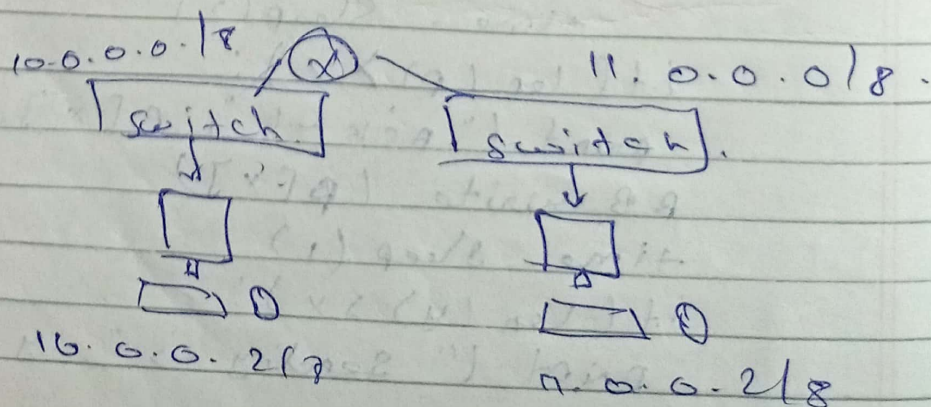 10.0.0.0./8
11.0.0.0/8.
Switch
Switch.
10.0.0.2/
11.0.0.2/8